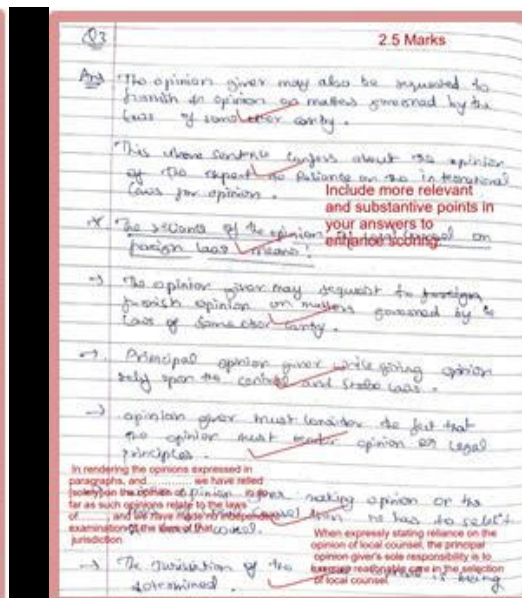 Q3
2.5 Marks
Ans The opinion giver may also be requested to
furnish an opinion on matters governed by the
laws of some other
This above sentence about the opinion
of the expert the reliance on the international
laws for opinion.
Include more relevant
and substantive points in
your answers to
enhance scoring.
The reliance of the opinion local counsel on
foreign laws means:
→ The opinion giver may request to
furnish opinion on matters governed by
laws of some other
→ Principal opinion giver while giving opinion
rely upon the central and state laws.
→ opinion giver must consider the fact that
the opinion must opinion or legal
principles.
In rendering the opinions expressed in
paragraphs, and ............ we have relied
solely on the opinion of
far as such opinions relate to the laws
of and we have made no independent
examination of the laws of that
jurisdiction
opinion giver making opinion or the
counsel he has to select
counsel.
When expressly stating reliance on the
opinion of local counsel, the principal
opinion giver's sole responsibility is to
exercise reasonable care in the selection
of local counsel
→ The Jurisdiction of the is being
determined.